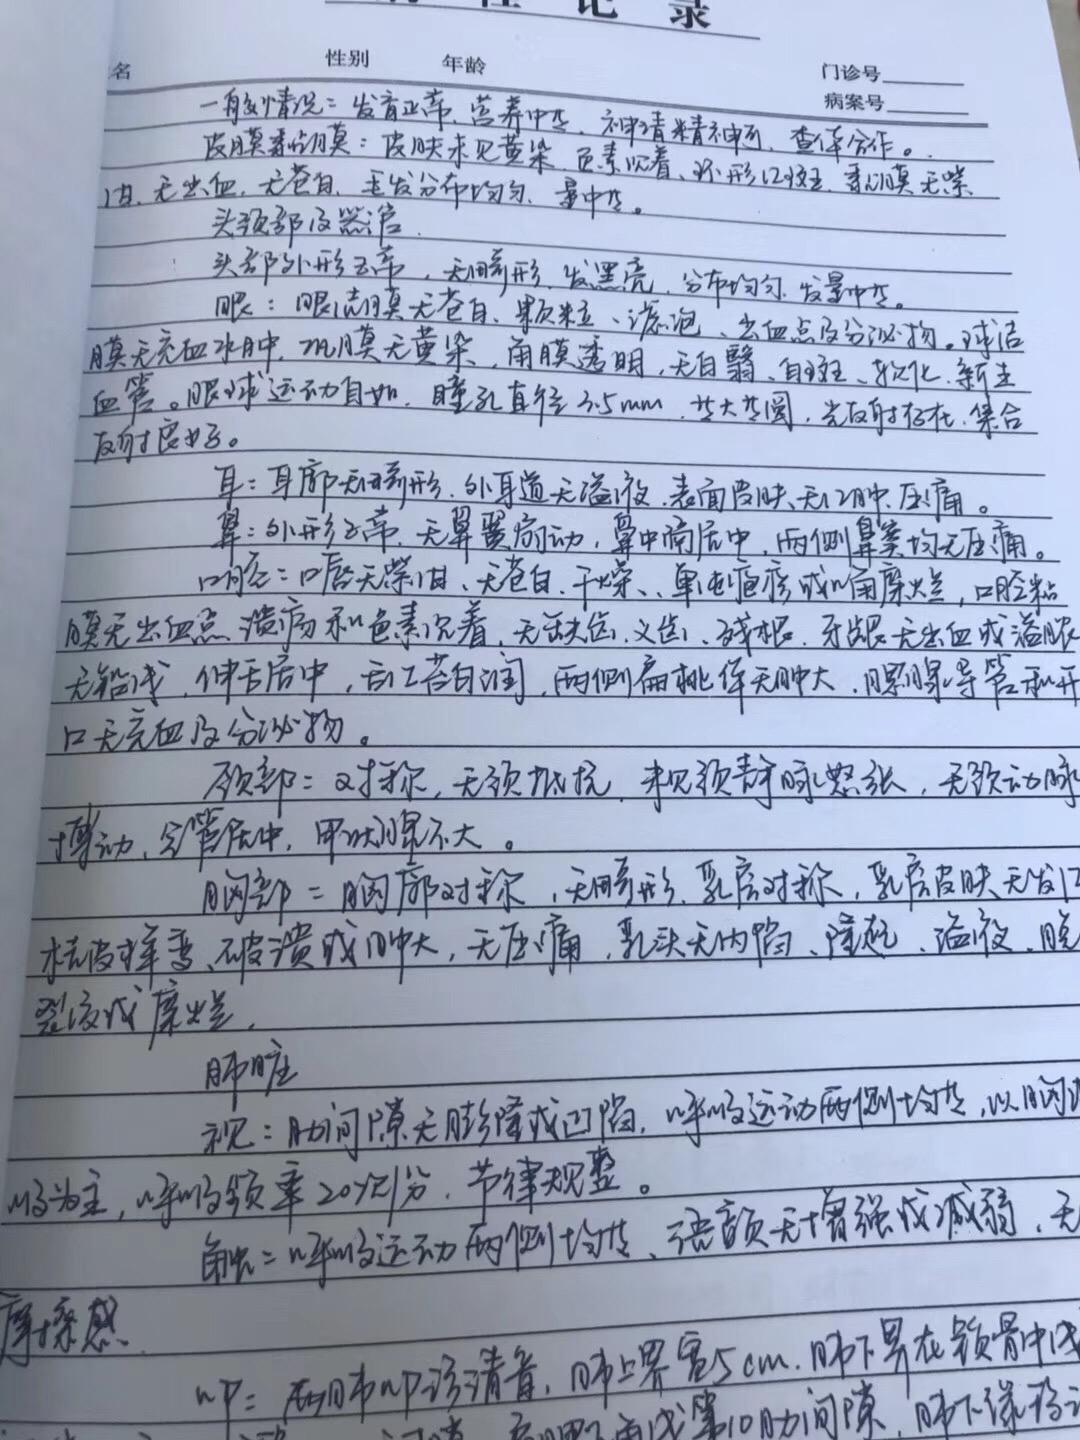 病 程 记 录
名 性别 年龄 门诊号
病案号
一般情况：发育正常，营养中等，神清精神可，查体合作。
皮肤黏膜：皮肤未见黄染，色素沉着、环形红斑，黏膜无紫
绀，无出血，无苍白，毛发分布均匀，量中等。
头颈部及器官
头部外形正常，无畸形，发黑亮，分布均匀，发量中等。
眼：眼结膜无苍白、颗粒、滤泡、出血点及分泌物。球结
膜无充血水肿，巩膜无黄染，角膜透明，无白翳、白斑、软化、新生
血管。眼球运动自如，瞳孔直径3.5mm，等大等圆，光反射存在，集合
反射良好。
耳：耳廓无畸形，外耳道无溢液，表面皮肤无红肿、压痛。
鼻：外形正常，无鼻翼扇动，鼻中隔居中，两侧鼻窦均无压痛。
口腔：口唇无紫绀、无苍白、干燥、单纯疱疹或口角糜烂，口腔粘
膜无出血点，溃疡和色素沉着，无缺齿、义齿、残根，牙龈无出血或溢脓
无铅线，伸舌居中，舌红苔白润，两侧扁桃体无肿大，腮腺导管和开
口无充血及分泌物。
颈部：对称，无颈抵抗，未见颈静脉怒张，无颈动脉
搏动，气管居中，甲状腺不大。
胸部：胸廓对称，无畸形，乳房对称，乳房皮肤无发红
桔皮样变、破溃或肿大，无压痛，乳头无内陷、隆起、溢液、脱
裂液或糜烂，
肺脏
视：肋间隙无膨隆或凹陷，呼吸运动两侧均等，以胸
吸为主，呼吸频率20次/分，节律规整。
触：呼吸运动两侧均等，语颤无增强或减弱，无
摩擦感
叩：两肺叩诊清音，肺上界宽5cm，肺下界在锁骨中线
第10肋间隙，肺下缘移